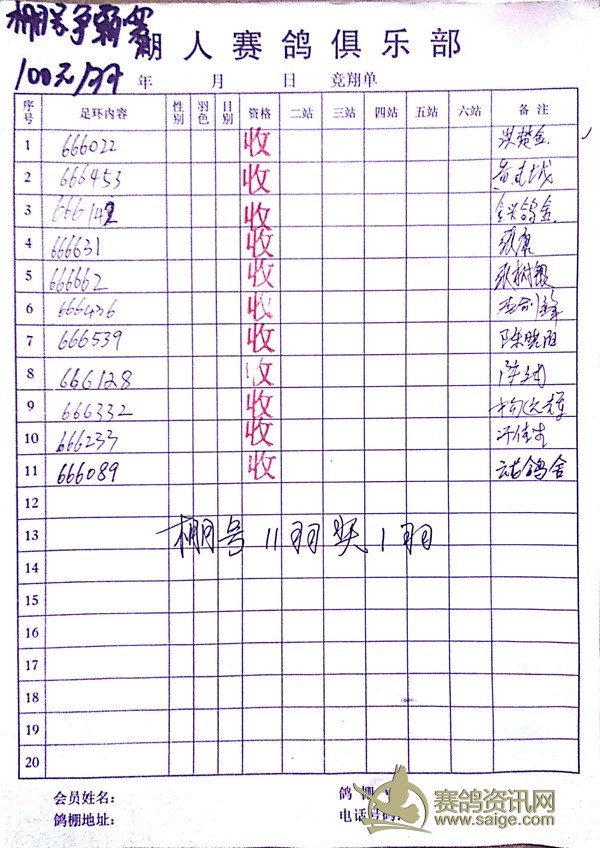 棚号争霸赛
潮人赛鸽俱乐部
100元/羽 年 月 日 竞翔单
序号 足环内容 性别 羽色 目别 资格 二站 三站 四站 五站 六站 备注
1 666022 收 洪楚金
2 666453 收
3 666142 收
4 666631 收
5 666662 收 张树银
6 666436 收
7 666539 收 陈晓阳
8 666128 收
9 666332 收
10 666233 收 许佳才
11 666089 收 鸽舍
12
13 棚号11羽奖1羽
14
15
16
17
18
19
20
会员姓名： 鸽棚
鸽棚地址： 电话号码：
赛鸽资讯网
www.saige.com